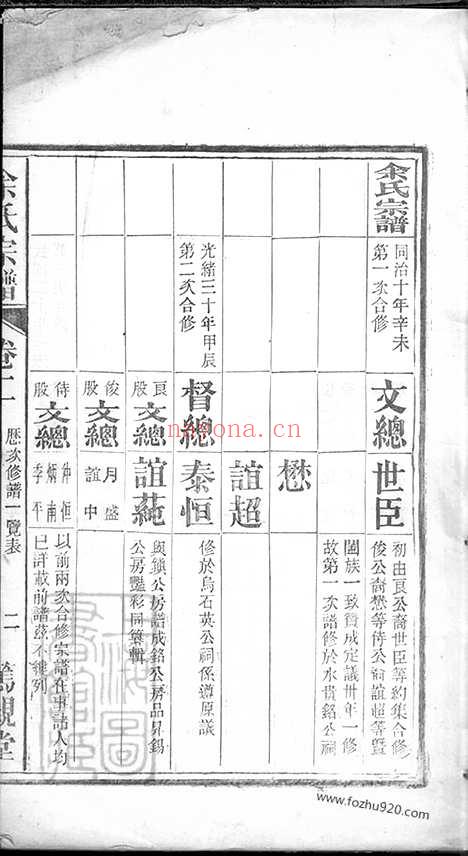 余氏宗譜
同治十年辛未
第一次合修
文總
世臣
初由良公裔世臣等約集合修
俊公裔懋等侍公裔誼超等暨
闔族一致贊成定議卅年一修
故第一次譜修於水貴銘公祠
懋
誼超
光緒三十年甲辰
第二次合修
督總
泰恒
修於烏石英公祠係遵原議
良股
文總
誼蒓
與鎮公房譜成銘公房品昇錫
公房豔彩同纂輯
俊股
文總
月盛
誼中
侍股
文總
仲恒
炳南
季平
以前兩次合修宗譜在事諸人均
已詳載前譜茲不縷列
余氏宗譜
卷二
歷次修譜一覽表
二
篤親堂
nayona.cn
www.fozhu920.com